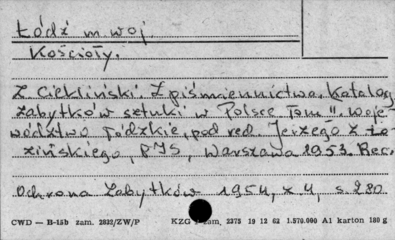 Łódź m. woj
Kościoły.
Z. Ciekliński. Z piśmiennictwa. Katalog
zabytków sztuki w Polsce Tom II. Woje-
wództwo łódzkie, pod red. Jerzego Z. Ło-
zińskiego, PIS, Warszawa 1953. Rec.
Ochrona Zabytków 1954, z. 4, s. 280
CWD — B-15b zam. 2822/ZW/P KZG zam. 2375 19 12 62 1.570.000 A1 karton 180 g